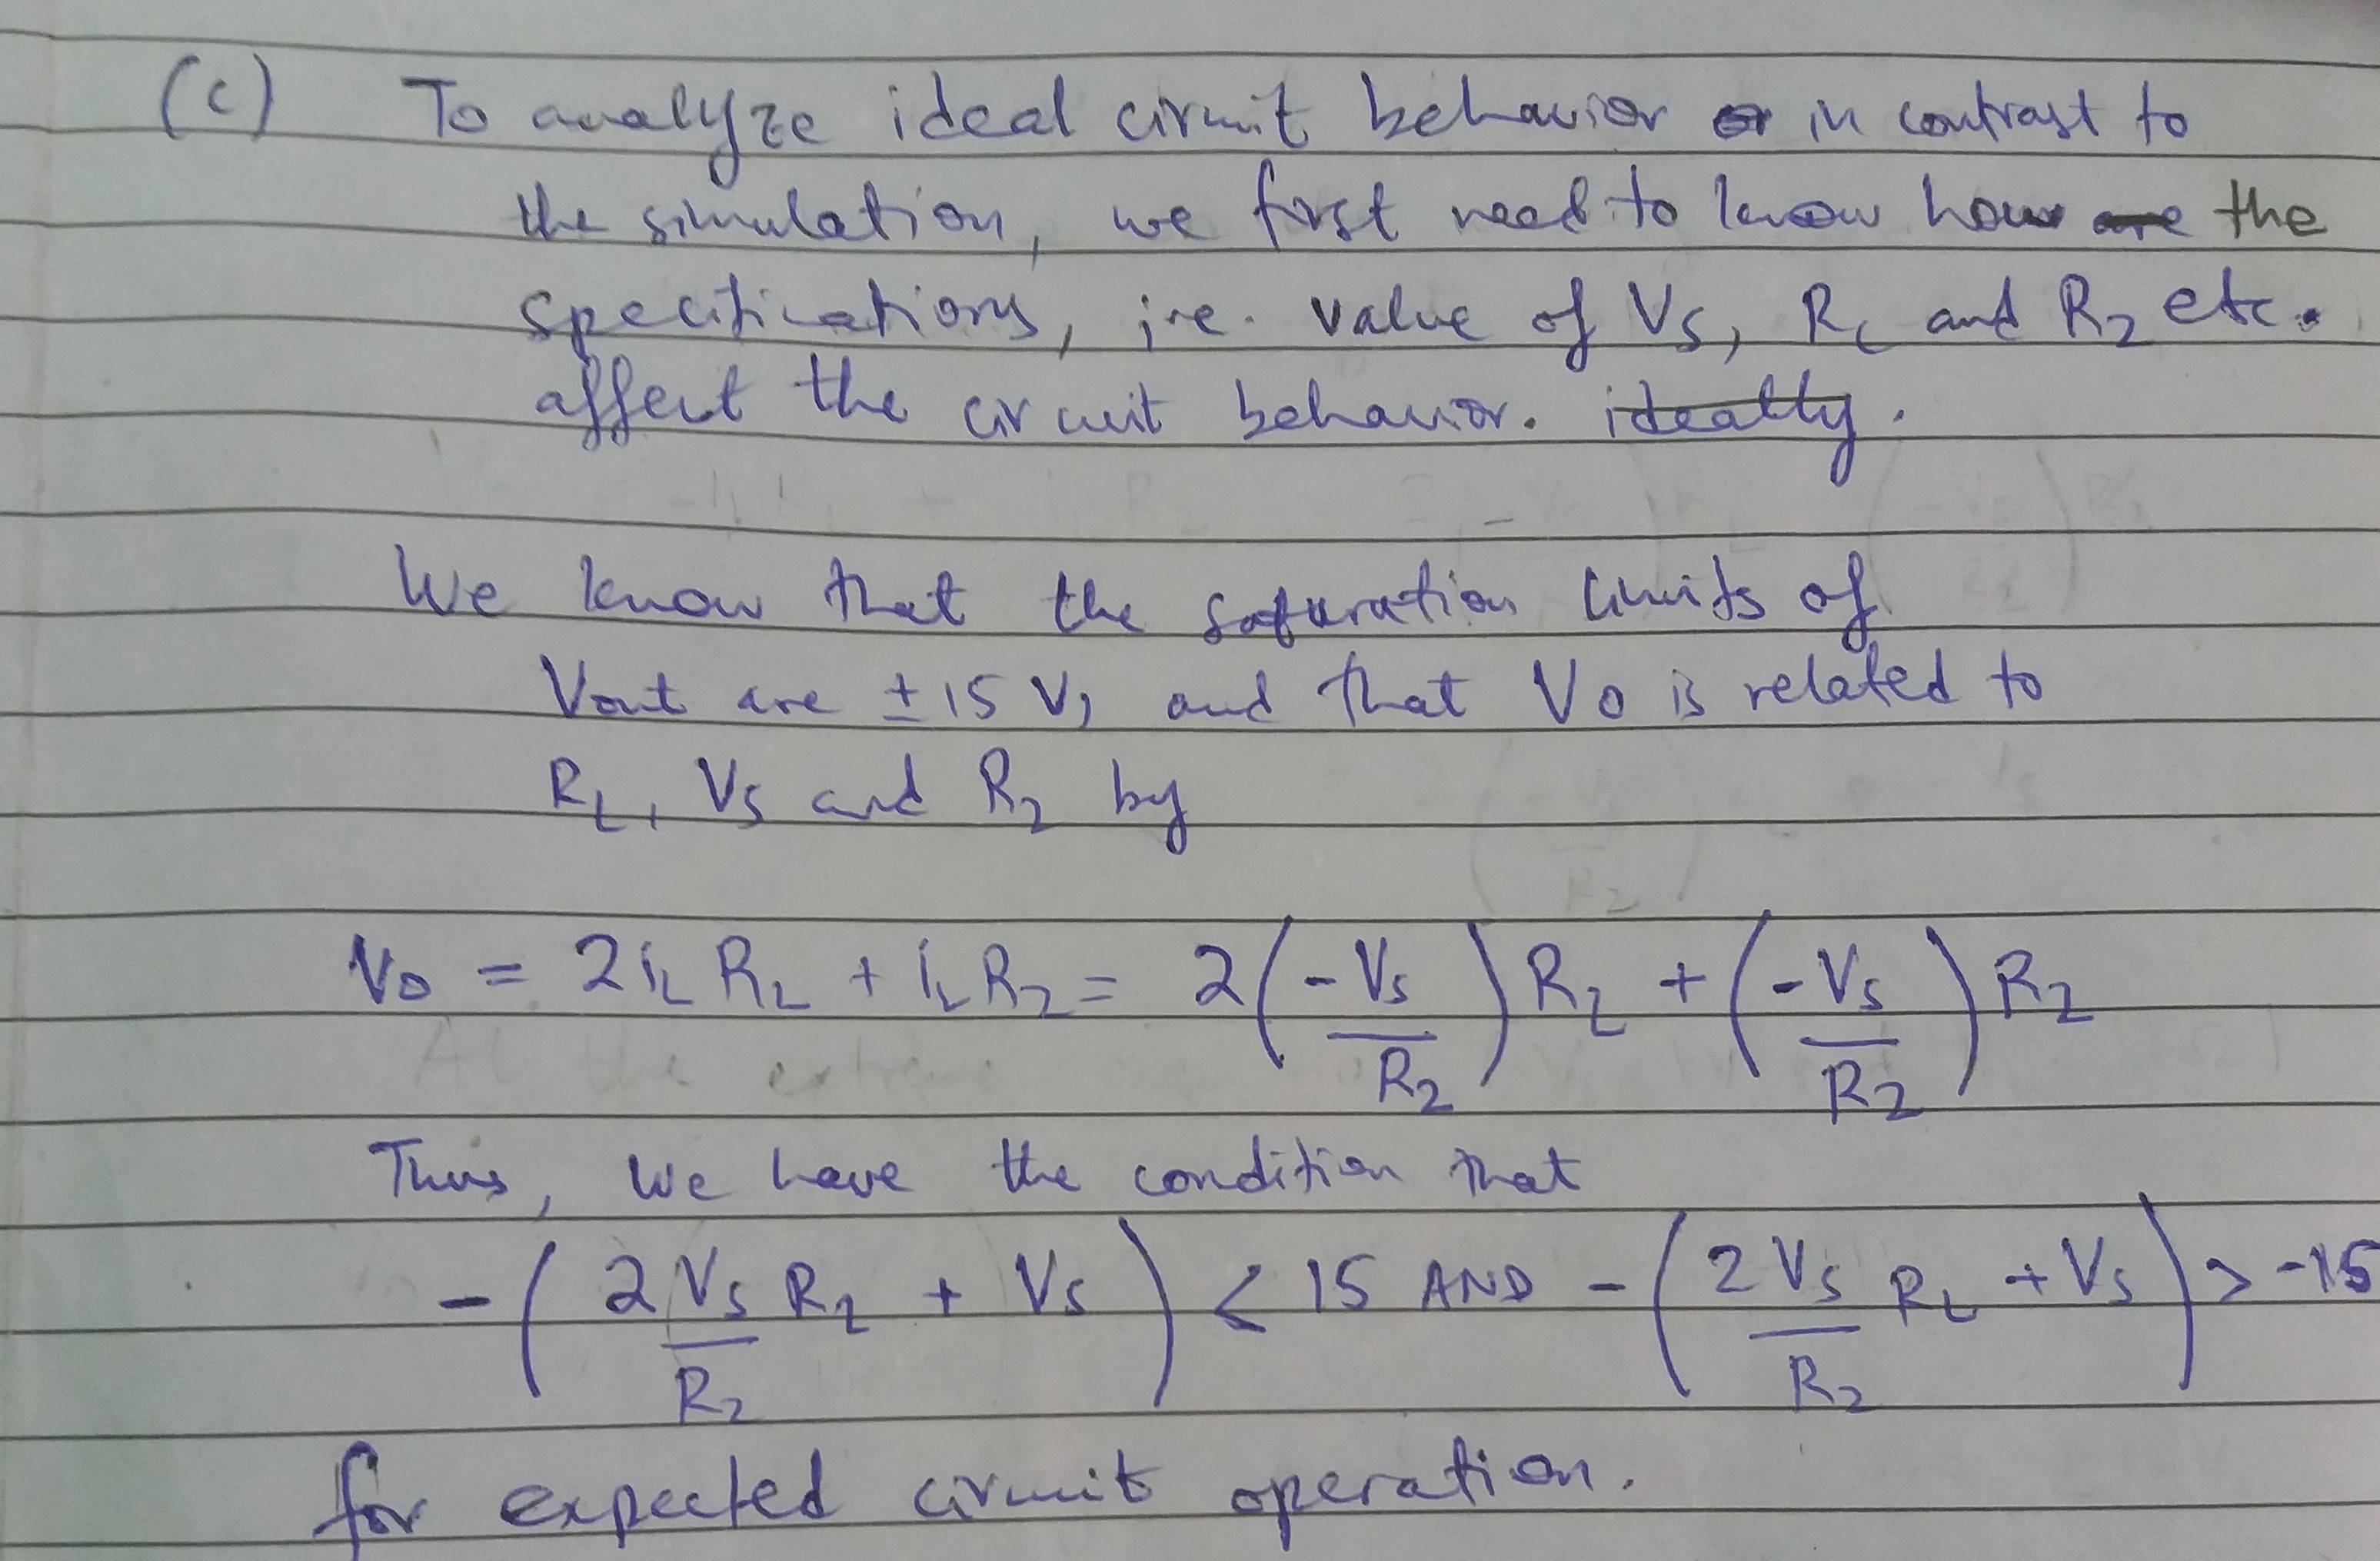 (c) To analyze ideal circuit behavior in contrast to
the simulation, we first need to know how the
specifications, i.e. value of Vs, RL and R2 etc.
affect the circuit behavior. ideally.
We know that the saturation limits of
Vout are ± 15 V, and that Vo is related to
RL, Vs and R2 by
Vo = 2iL RL + iL R2 = 2(-Vs/R2) RL + (-Vs/R2) R2
At the extreme
Thus, we have the condition that
-(2Vs/R2 RL + Vs) < 15 AND -(2Vs/R2 RL + Vs) > -15
for expected circuit operation.